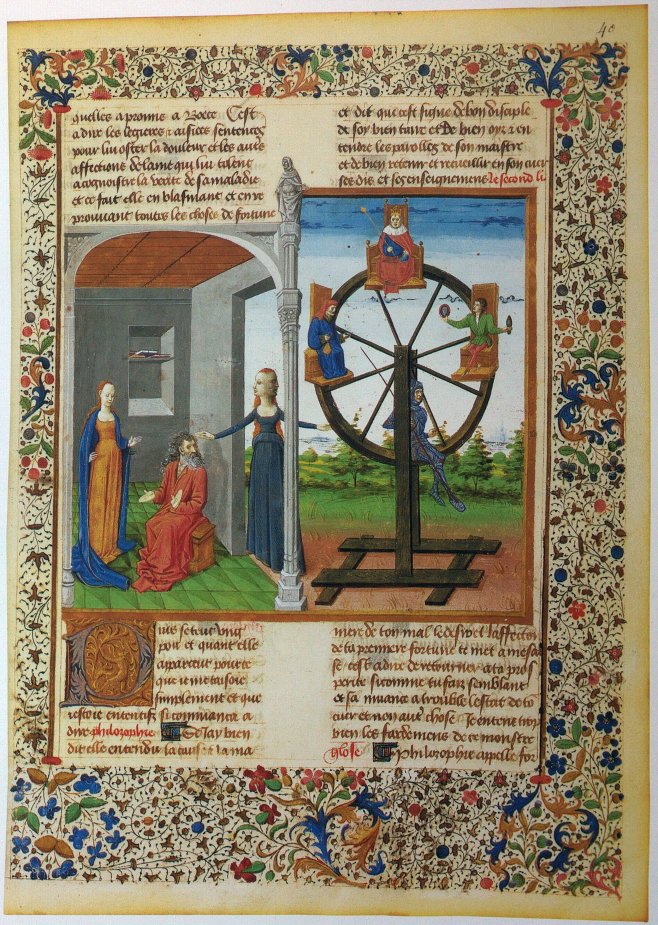 quelles a promis a Boece Cest
adire les legieres raisons et sentences
pour lui oster la douleur et les aultres
affections de lame qui lui tolent
a cognoistre la verite de sa maladie
et ce fait elle en blasmant et en re
prouvant toutes les choses de fortune
et dit que cest signe de bon disciple
de soy bien taire et de bien oyr et en
tendre les parolles de son maistre
et de bien retenir et recueillir en son cuer
ses dis et ses enseignemens le second li
40
uis se teut ung
pou et quant elle
apparceut pource
que ie me taisoie
simplement et que
iestoie ententif si commenca a
dire philozophie Se Jay bien
dit elle entendu la cause et la ma
niere de ton mal le desir et laffection
de ta premiere fortune te met a mesai
se cest a dire de retourner a ta pros
perite si comme tu fais semblant
et sa muance a trouble lestat de to
cuer et non aultre chose Je entens trop
bien les fardemens de ce monstre
glose Philozophie appelle for